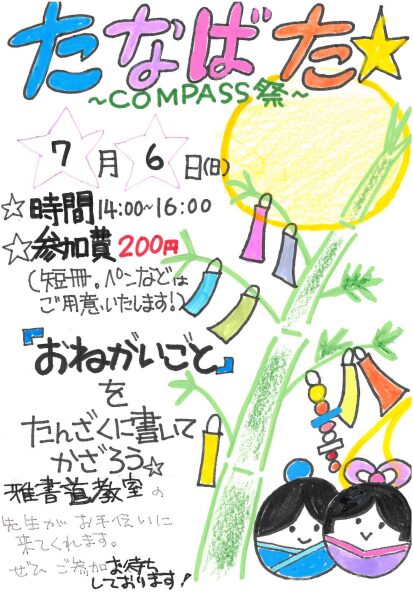 たなばた☆
～COMPASS祭～
7月6日(日)
☆時間14:00～16:00
☆参加費200円
(短冊。ペンなどは
ご用意いたします!)
『おねがいごと』
を
たんざくに書いて
かざろう☆
雅書道教室の
先生がお手伝いに
来てくれます。
ぜひご参加お待ち
しております!